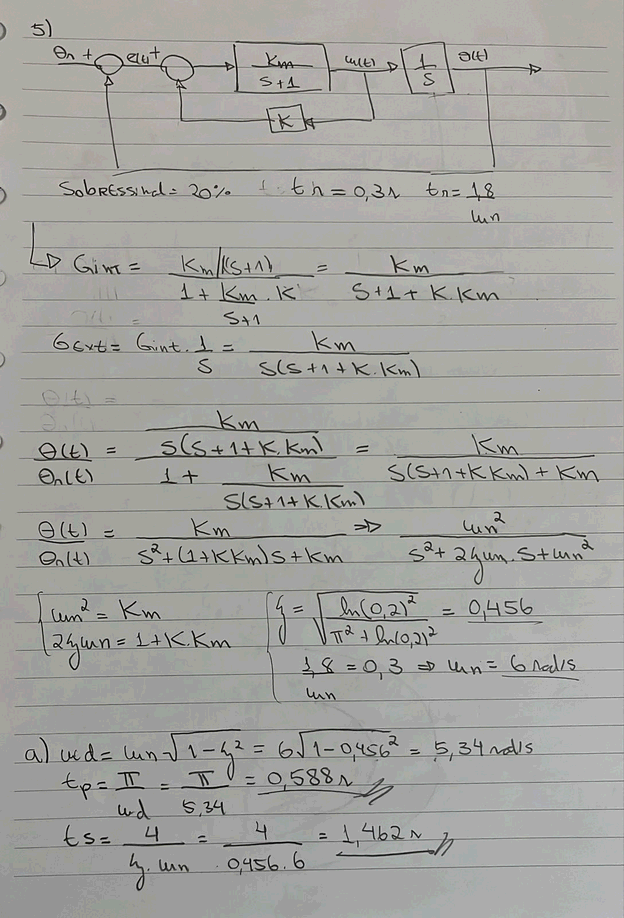 5)
θr + e(t) + Km/(S+1) ω(t) 1/S θ(t)
K
SOBRESSINAL = 20% tr = 0,3s tr = 1,8/ωn
↳ Gint = (Km/(S+1))/(1 + Km/(S+1) . K) = Km/(S+1+K.Km)
Gext = Gint . 1/S = Km/(S(S+1+K.Km))
θ(t)/θr(t) = (Km/(S(S+1+K.Km)))/(1 + Km/(S(S+1+K.Km))) = Km/(S(S+1+KKm)+Km)
θ(t)/θr(t) = Km/(S²+(1+KKm)S+Km) ⇒ ωn²/(S²+2ζωn.S+ωn²)
{ ωn² = Km
2ζωn = 1+K.Km
{ ζ = √(ln(0,2)²/(π²+ln(0,2)²)) = 0,456
1,8/ωn = 0,3 ⇒ ωn = 6 rad/s
a) ωd = ωn√(1-ζ²) = 6√(1-0,456²) = 5,34 rad/s
tp = π/ωd = π/5,34 = 0,588s
ts = 4/(ζ.ωn) = 4/(0,456.6) = 1,462s